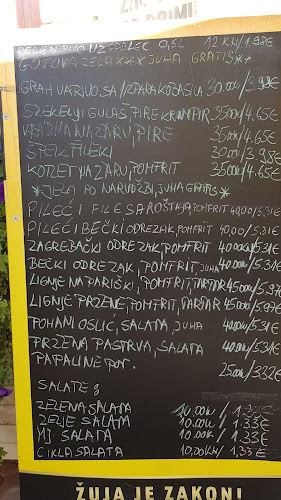 12 KN/1.98€
GOTOVA JELA *** JUHA GRATIS **
GRAH VARIVO SA KOBASICA 30.00KN/3.98€
SZEKELYI GULAŠ, PIRE KRUMPIR 35.00KN/4.65€
NA ŽARU, PIRE 35.00KN/4.65€
ŠPEK FILEKI 30.00KN/3.98€
KOTLET NA ŽARU, POMFRIT 35.00KN/4.65€
*JELA PO NARUDŽBI, JUHA GRATIS*
PILEĆI FILE SA ROŠTILJA, POMFRIT 40.00/5.31€
PILEĆI BEČKI ODREZAK, POMFRIT 40.00/5.31€
ZAGREBAČKI ODREZAK, POMFRIT 40.00KN/5.31€
BEČKI ODREZAK, POMFRIT, JUHA 40.00KN/5.31€
LIGNJE NA PARIŠKI, POMFRIT, TARTAR 45.00KN/5.97€
LIGNJE PRŽENE, POMFRIT, TARTAR 45.00KN/5.97€
POHANI OSLIĆ, SALATA, JUHA 40.00KN/5.31€
PRŽENA PASTRVA, SALATA 40.00KN/5.31€
PAPALINE POR. 25.00KN/3.32€
SALATE:
ZELENA SALATA 10.00KN/1.33€
ZELJE SALATA 10.00KN/1.33€
MJ. SALATA 10.00KN/1.33€
CIKLA SALATA 10.00KN/1.33€
ŽUJA JE ZAKON!